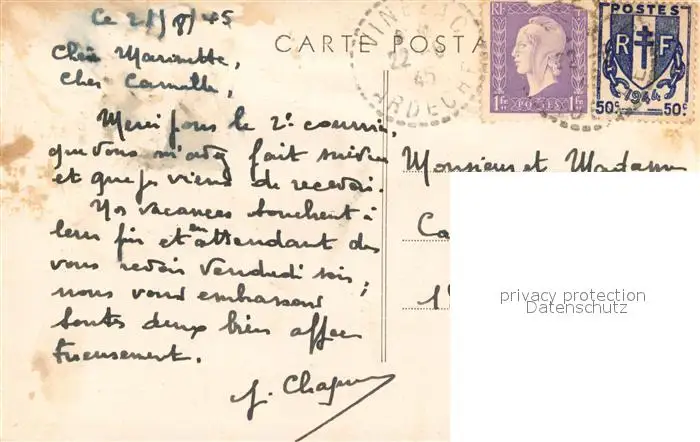 Ce 21/8/45
Chère Marinette,
Cher Camille,
Merci pour le 2e courrier,
que vous m'avez fait suivre
et que je viens de recevoir.
Nos vacances touchent à
leur fin et en attendant de
vous revoir Vendredi soir,
nous vous embrassons
toutes deux bien affec
tueusement.
J. Chapu
CARTE POSTA
22
45
ARDECHE
RF
1F POSTES 1F
POSTES
RF
1944
50c 50c
Monsieur et Madame
Ca
1
privacy protection
Datenschutz